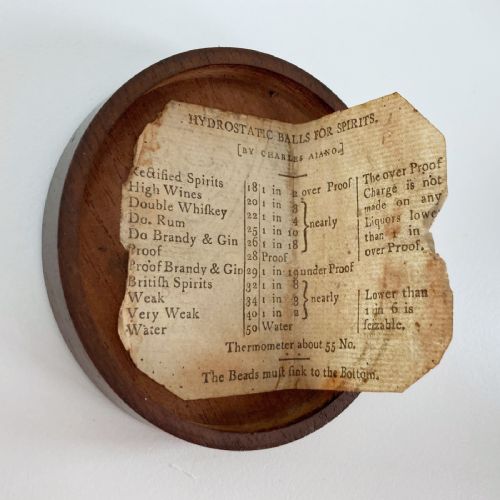 HYDROSTATIC BALLS FOR SPIRITS.
[BY CHARLES AIANO.]
Rectified Spirits 18 1 in 2 over Proof
High Wines 20 1 in 3
Double Whiſkey 22 1 in 4 nearly
Do. Rum 25 1 in 10
Do Brandy & Gin 26 1 in 18
Proof 28 Proof
Proof Brandy & Gin 29 1 in 10 under Proof
Britiſh Spirits 32 1 in 8
Weak 34 1 in 3 nearly
Very Weak 40 1 in 2
Water 50 Water
The over Proof
Charge is not
made on any
Liquors lowe
than 1 in
over Proof.
Lower than
1 in 6 is
ſeizable.
Thermometer about 55 No.
The Beads muſt ſink to the Bottom.